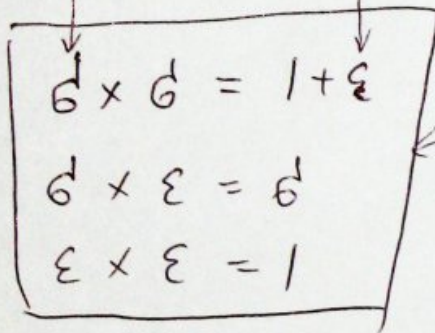 σ × σ = 1 + ε
σ × ε = σ
ε × ε = 1